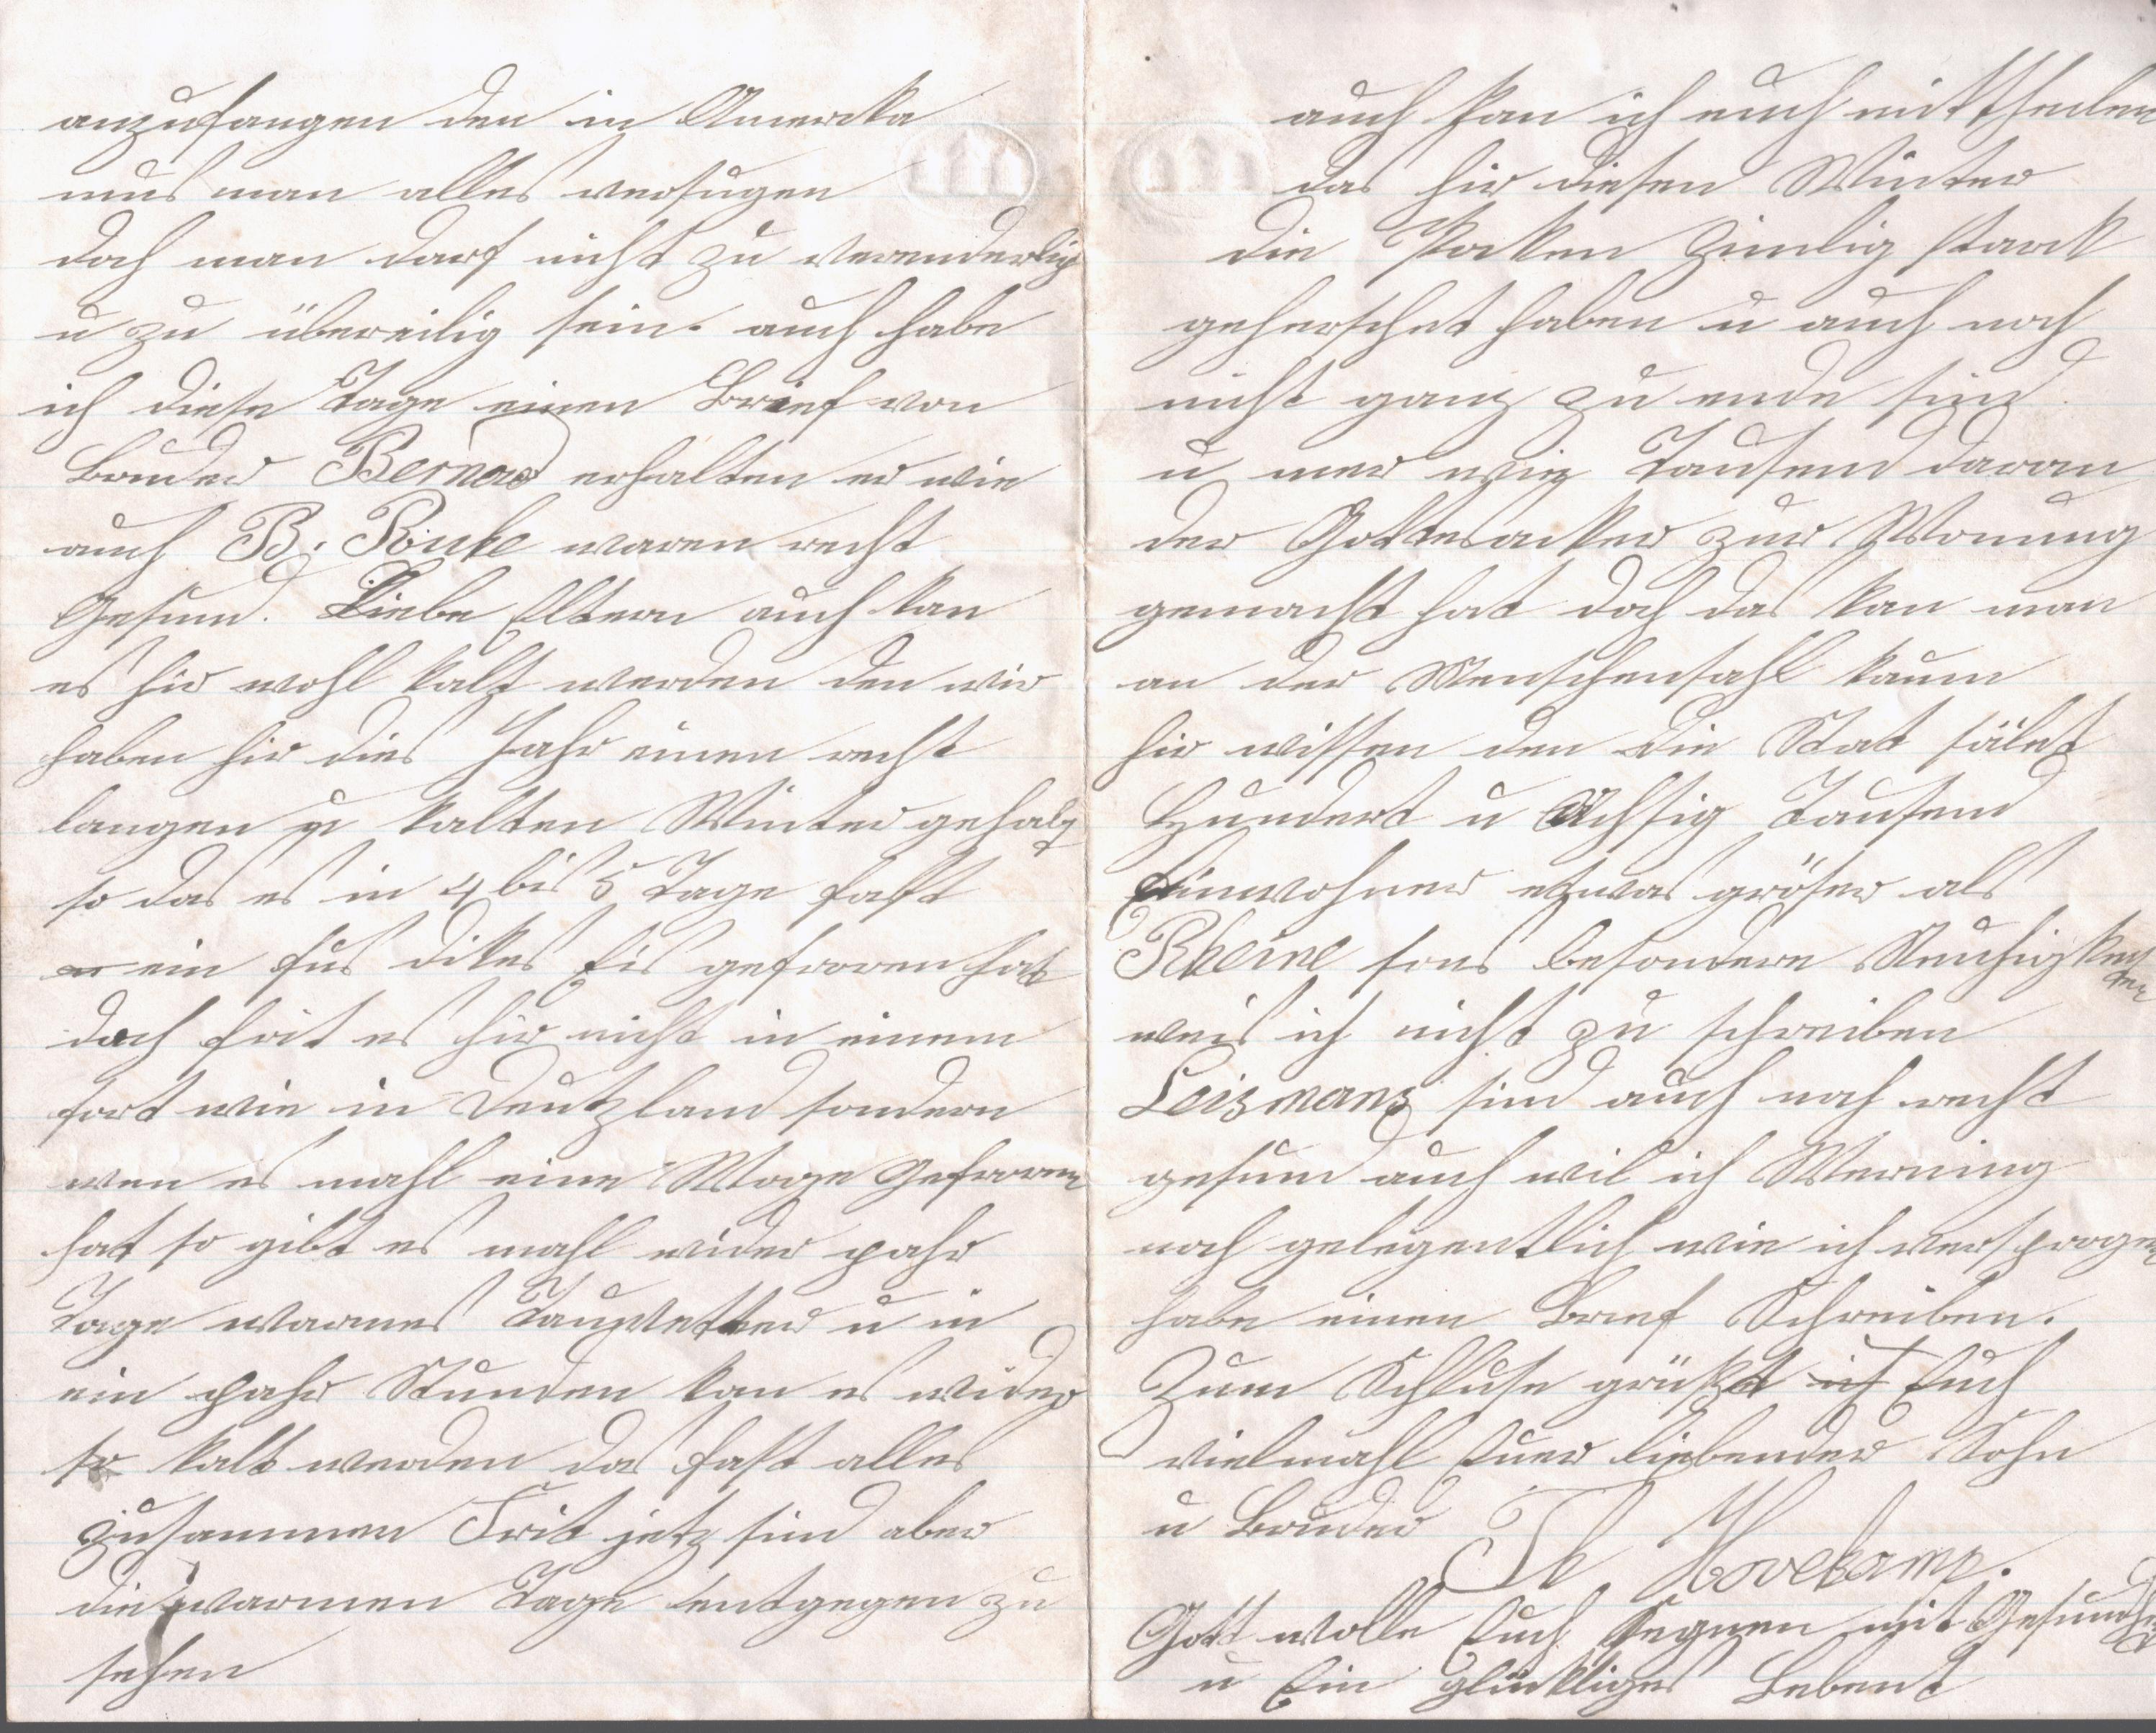 anzufangen den in Amercka
mus man alles versugen
doch man darf nicht zu verenderlig
u zu übereilig sein. auch habe
ich diese Tage einen Brief von
Bruder Bernad erhalten er wie
auch B. Pönke waren recht
Gesund. Liebe Eltern auch kan
es hir wohl kalt werden den wir
haben hir dies Jahr einen recht
langen u kalten Winter gehabt
so das es in 4 bis 5 Tage fast
ein fus dikes Eis gefroren hat
doch frit es hir nicht in einem
fort wie in Deutzland sondern
wen es mahl eine Woge Gefroren
hat so gibt es mahl wider pahr
Tage warmes Tauwetter u in
ein pahr Stunden kan es wider
so kalt werden das fast alles
zusammen Frit jetz sind aber
die warmen Tage entgegen zu
sehen
auch kan ich euch mittheilen
das hir diesen Winter
die Poken Zimlig starck
geherschet haben u auch noch
nicht ganz zu ende sind.
u mer wie Tausend daran
der Gottesacker zur Wonung
gemacht hat doch das kan man
an der Menschensahl kaum
hir wissen den die Stat sält
Hundert u Achsig Tausend
Einwohner etwas gröser als
Rheine sons besondere Neuhigkeiten
weis ich nicht zu schreiben
Leizmans sind auch noch recht
gesund auch wil ich Werning
noch gelegentlich wie ich versprogen
habe einen Brief Schreiben.
Zum Schluse grüßt ich Euch
vielmahl Euer liebender Sohn
u Bruder Th Hovekamp.
Gott wolle Euch Segnen mit Gesundheit
u Ein glückliges Lebent